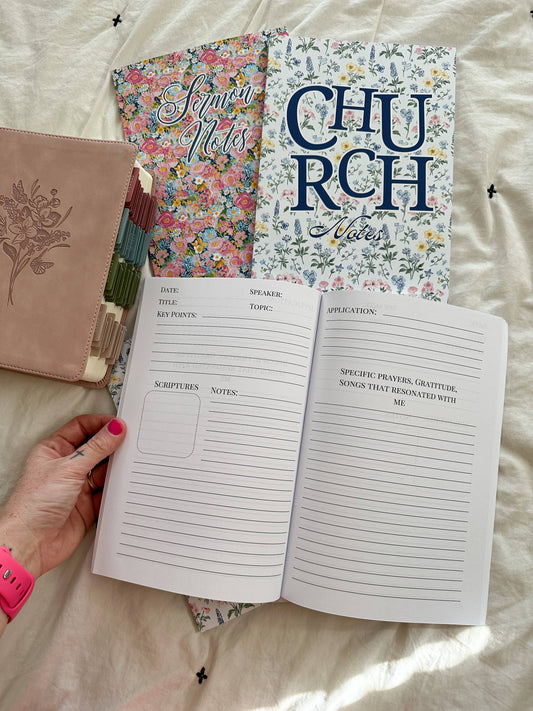 Sermon
Notes
CHU
RCH
Notes
DATE:
SPEAKER:
TITLE:
TOPIC:
KEY POINTS:
SCRIPTURES
NOTES:
APPLICATION:
SPECIFIC PRAYERS, GRATITUDE,
SONGS THAT RESONATED WITH
ME